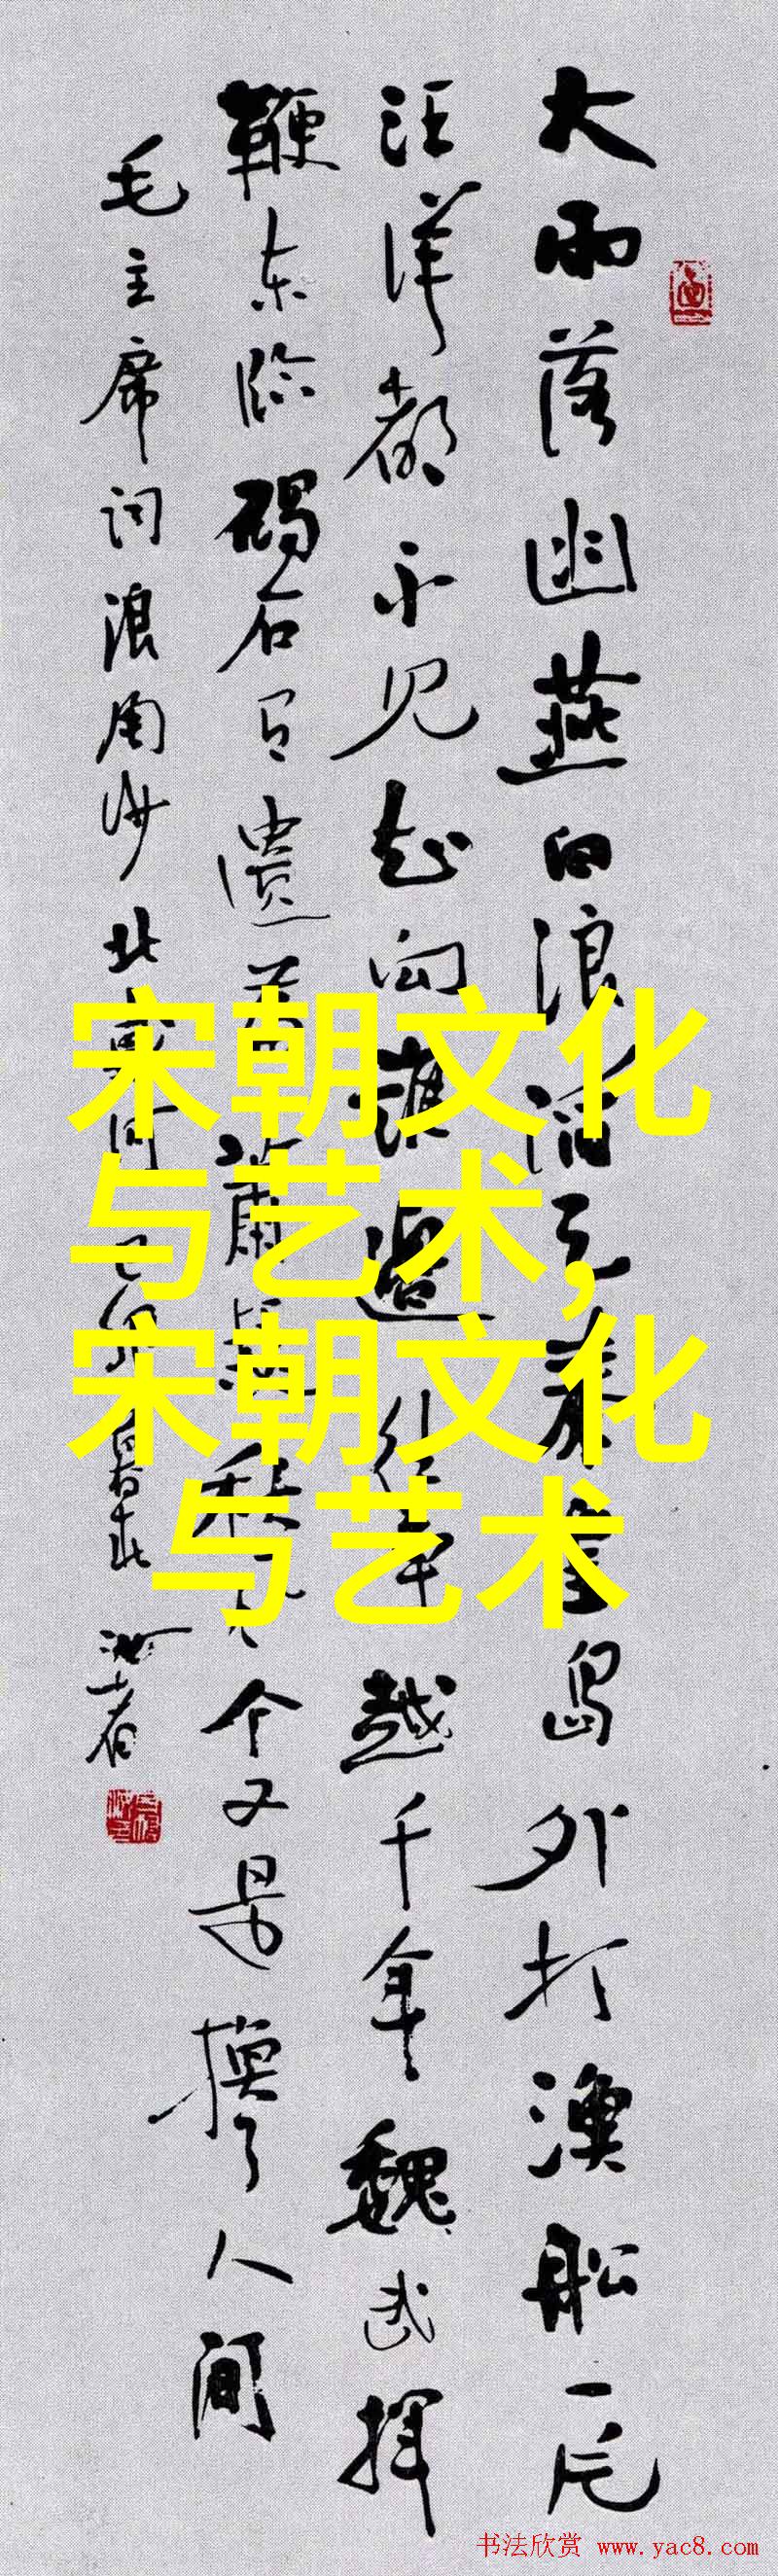 大雨落幽燕白浪滔天秦皇岛外打渔船一片
汪洋都不见知向谁边往事越千年魏武挥
鞭东临碣石有遗萧瑟秋今又是换了人间
毛主席词浪淘沙北戴河
宋朝文化
与艺术,
宋朝文化
与艺术
书法欣赏 www.yac8.com